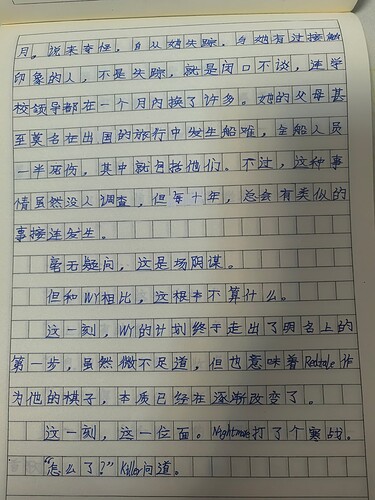 月。说来奇怪，自从她失踪，与她有过接触
印象的人，不是失踪，就是闭口不谈，连学
校领导都在一个月内换了许多。她的父母甚
至莫名在出国的旅行中发生船难，全船人员
一半死伤，其中就包括他们。不过，这种事
情虽然没人调查，但每十年，总会有类似的
事接连发生。
毫无疑问，这是场阴谋。
但和WY相比，这根本不算什么。
这一刻，WY的计划终于走出了明名上的
第一步，虽然微不足道，但也意味着Redtale作
为他的棋子，本质已经在逐渐改变了。
这一刻，这一位面。Nightmare打了个寒战。
“怎么了？”Killer问道。